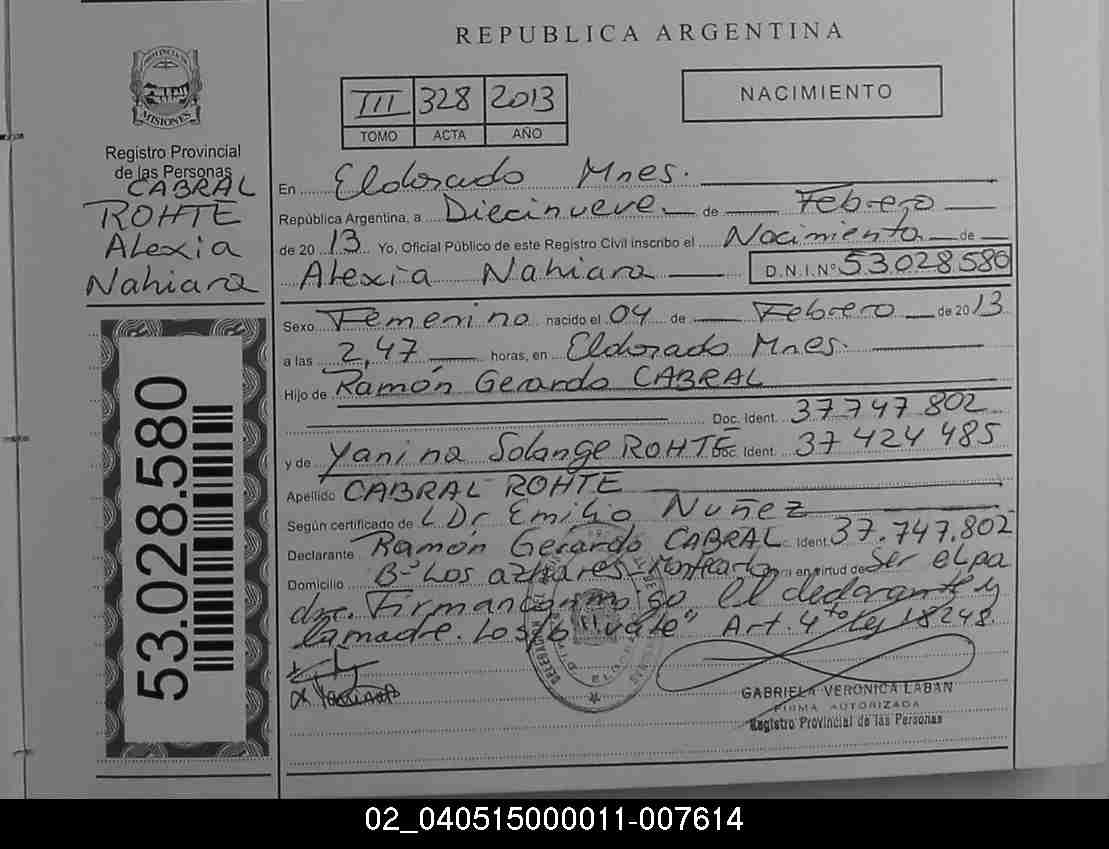 REPUBLICA ARGENTINA
PROVINCIA DE
MISIONES
Registro Provincial
de las Personas
CABRAL
ROHTE
Alexia
Nahiara
53.028.580
III 328 2013
TOMO ACTA AÑO
NACIMIENTO
En Eldorado Mnes.
República Argentina, a Diecinueve de Febrero
de 2013 Yo, Oficial Público de este Registro Civil inscribo el Nacimiento de
Alexia Nahiara D.N.I.Nº 53.028.580
Sexo Femenino nacido el 04 de Febrero de 2013
a las 2,47 horas, en Eldorado Mnes.
Hijo de Ramón Gerardo CABRAL
Doc. Ident. 37 747 802
y de Yanina Solange ROHTE Doc. Ident. 37 424 485
Apellido CABRAL ROHTE
Según certificado de Dr Emilio Nuñez
Declarante Ramón Gerardo CABRAL Ident. 37.747.802
Domicilio Bº Los azahares - Montecarlo en virtud de Ser el pa
dre. Firman conmigo el declarante y
la madre. "vale" Art. 4to Ley 18248.
GABRIELA VERONICA LABAN
FIRMA AUTORIZADA
Registro Provincial de las Personas
02_040515000011-007614